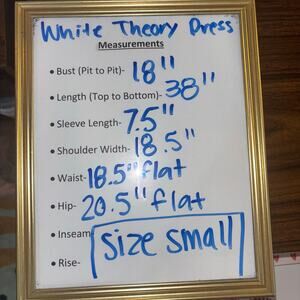 White Theory Dress
Measurements
• Bust (Pit to Pit)- 18"
• Length (Top to Bottom)- 38"
• Sleeve Length- 7.5"
• Shoulder Width- 18.5"
• Waist- 18.5" flat
• Hip- 20.5" flat
• Inseam
• Rise-
Size small